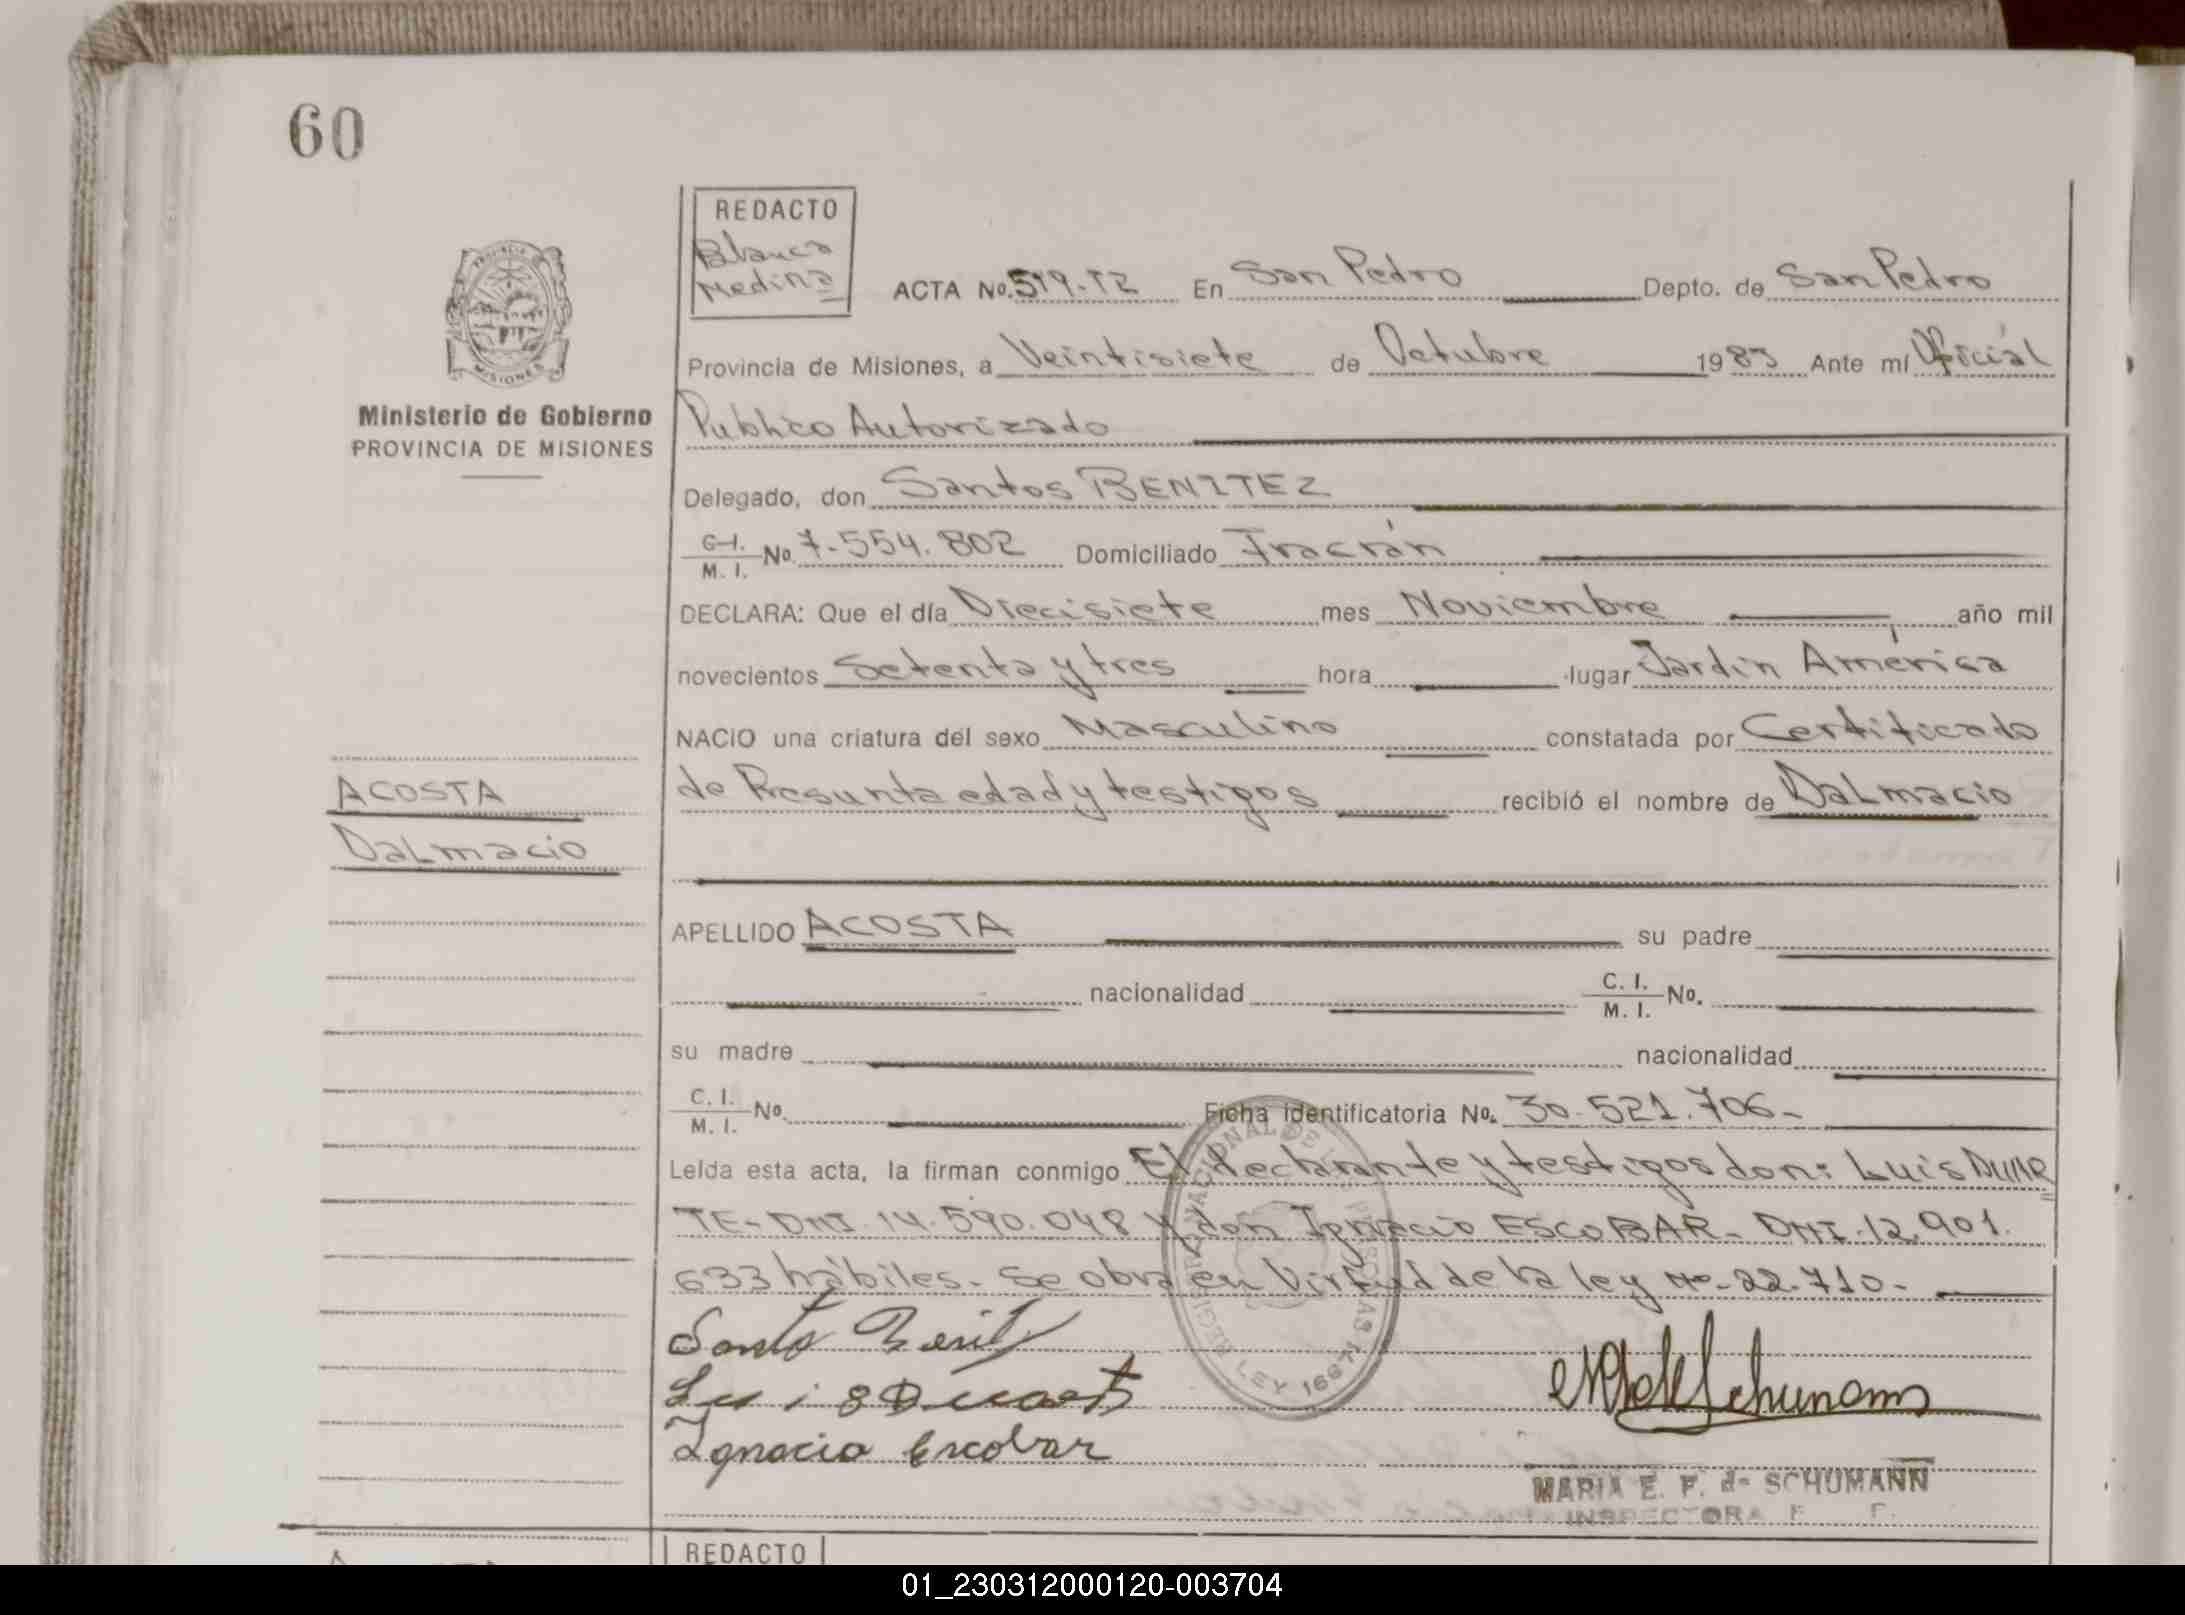 60
REDACTO
Blanca
Medina
ACTA No. 519-T2 En San Pedro Depto. de San Pedro
Provincia de Misiones, a Veintisiete de Octubre 1983 Ante mí Oficial
Publico Autorizado
Ministerio de Gobierno
PROVINCIA DE MISIONES
Delegado, don Santos BENITEZ
C.I. M. I. No. 7.554.802 Domiciliado Fracrán
DECLARA: Que el día Diecisiete mes Noviembre año mil
novecientos Setenta y tres hora lugar Jardín América
NACIO una criatura del sexo Masculino constatada por Certificado
de Presunta edad y testigos recibió el nombre de Dalmacio
ACOSTA
Dalmacio
APELLIDO ACOSTA su padre
nacionalidad C. I. M. I. No.
su madre nacionalidad
C. I. M. I. No. Ficha identificatoria No. 30.521.706-
Leída esta acta, la firman conmigo El declarante y testigos don: Luis DUAR
TE- DNI. 14.590.048 y don Ignacio ESCOBAR- DNI. 12.901.
633 hábiles. Se obra en Virtud de la ley No. 22.710-
REGISTRO NACIONAL DE LAS PERSONAS LEY 16671
Luis Duarte
Ignacio Escobar
MARIA E. F. de SCHUMANN
INSPECTORA
REDACTO
01_230312000120-003704